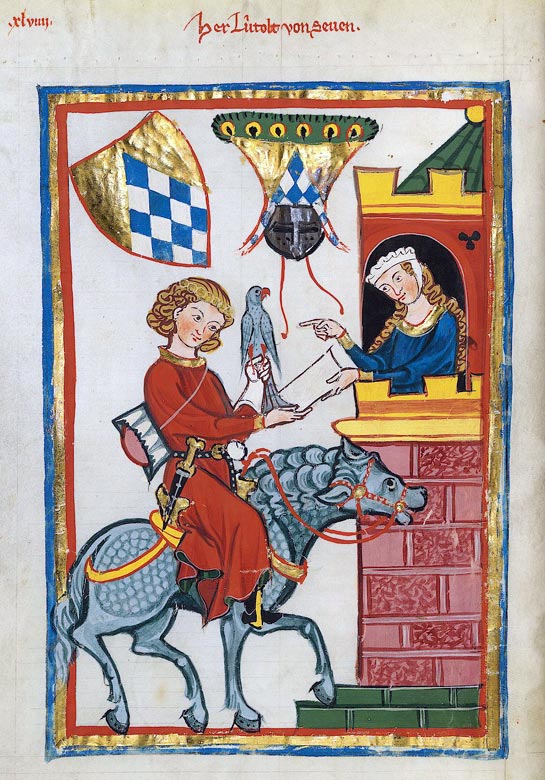 xlviiij.
Her Lůtolt von seven.